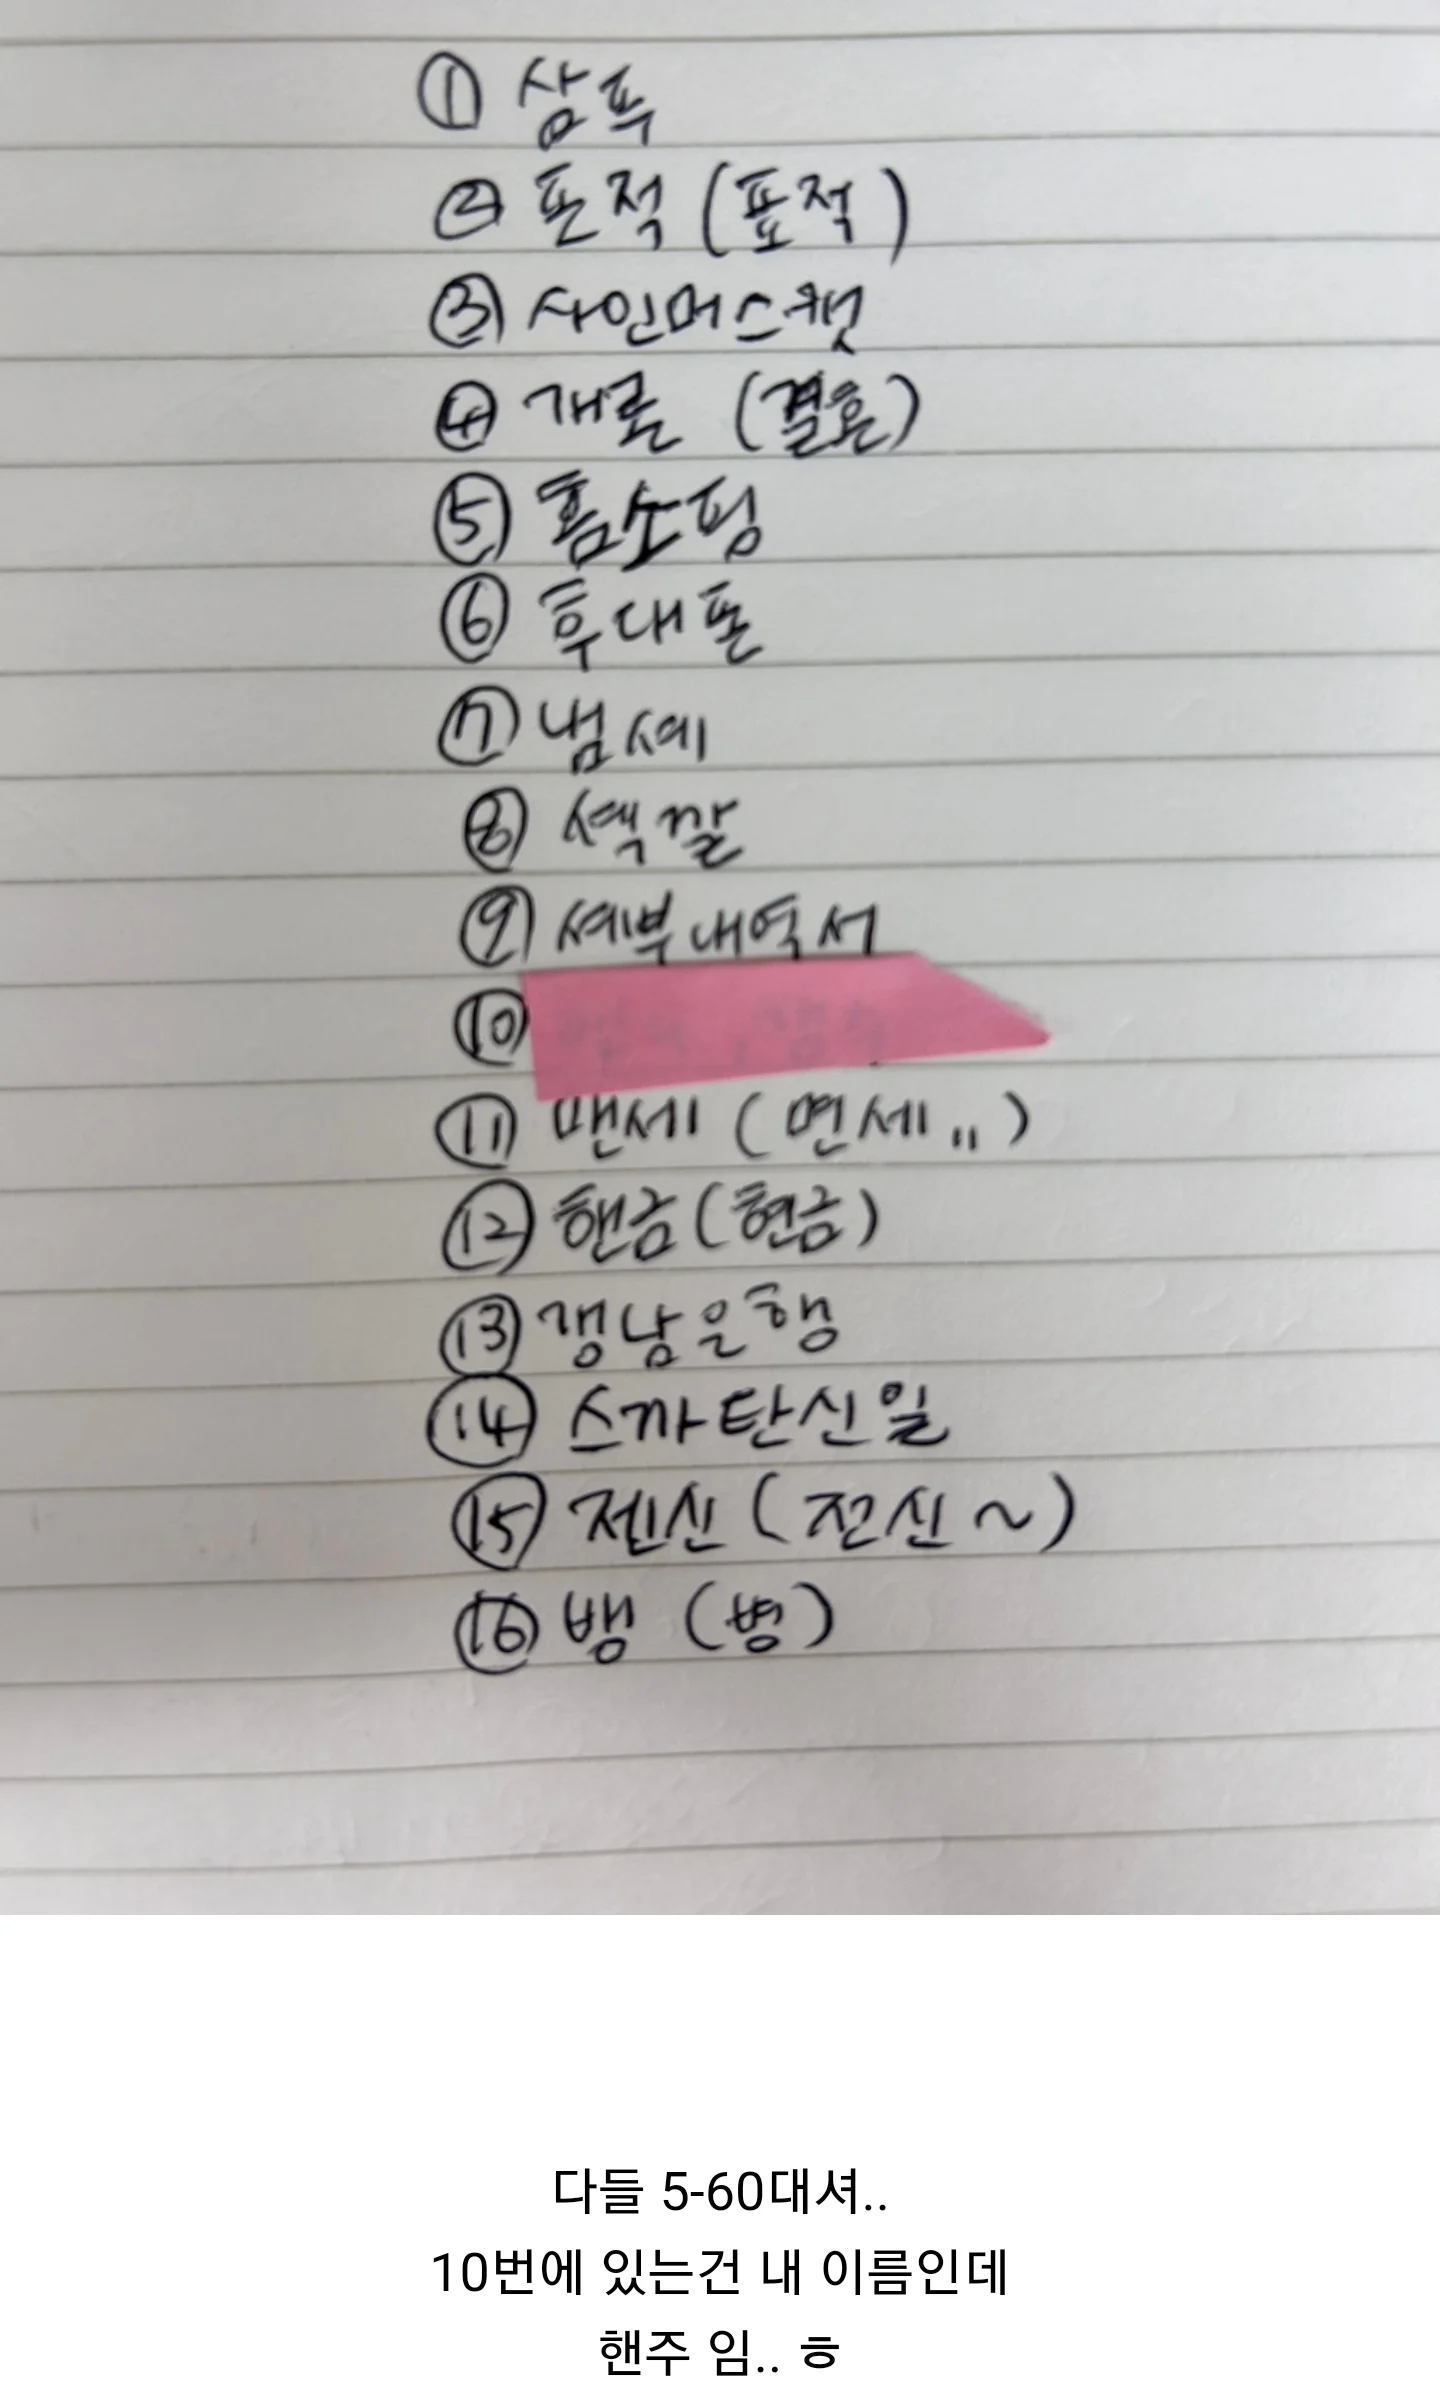 ① 삼푸
② 푠적 (표적)
③ 사인머스캣
④ 개론 (결혼)
⑤ 홈소핑
⑥ 후대폰
⑦ 냄셰
⑧ 셱깔
⑨ 셰부내역서
⑩
⑪ 맨세 (면세 〃)
⑫ 핸금 (현금)
⑬ 갱남은행
⑭ 스까탄신일
⑮ 젠신 (전신~)
⑯ 뱅 (병)
다들 5-60대셔..
10번에 있는건 내 이름인데
핸주 임.. ㅎ